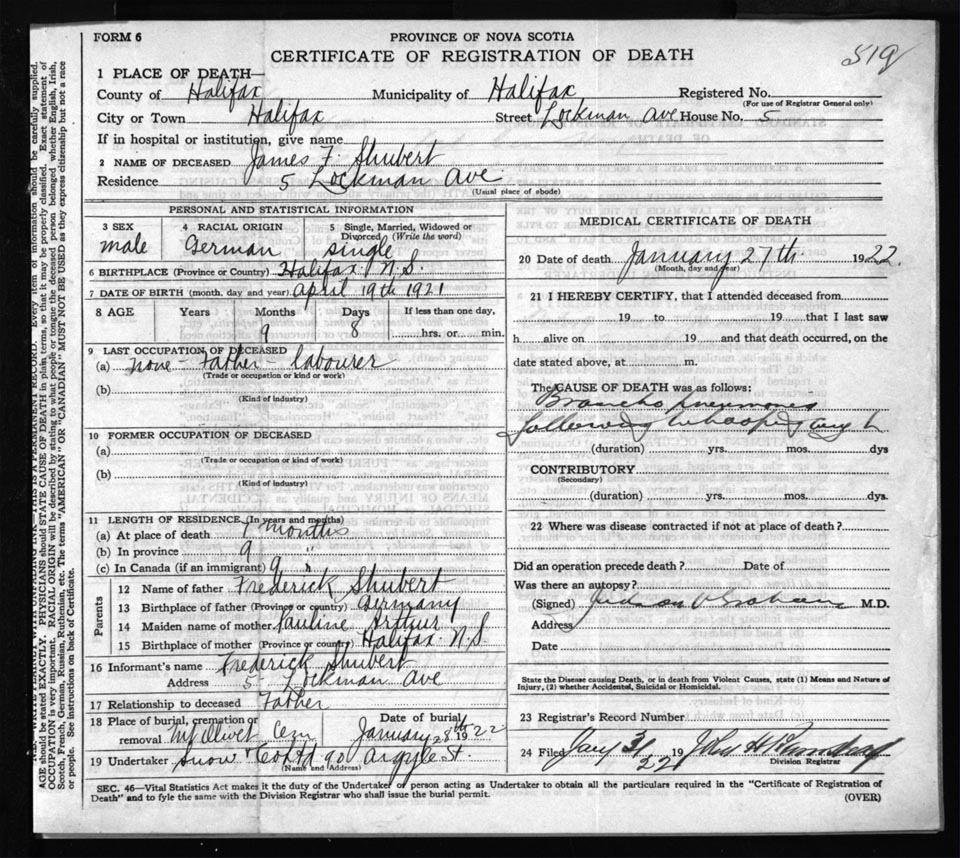 FORM 6
PROVINCE OF NOVA SCOTIA
CERTIFICATE OF REGISTRATION OF DEATH
519
1 PLACE OF DEATH—
County of Halifax Municipality of Halifax Registered No.
(For use of Registrar General only)
City or Town Halifax Street Lockman Ave House No. 5
If in hospital or institution, give name
2 NAME OF DECEASED James F. Shubert
Residence 5 Lockman Ave
(Usual place of abode)
PERSONAL AND STATISTICAL INFORMATION
3 SEX 4 RACIAL ORIGIN 5 Single, Married, Widowed or
Divorced (Write the word)
male German single
6 BIRTHPLACE (Province or Country) Halifax N.S.
7 DATE OF BIRTH (month, day and year) April 19th 1921
8 AGE Years Months Days If less than one day,
9 8 hrs. or min.
9 LAST OCCUPATION OF DECEASED
(a) none - Father - labourer
(Trade or occupation or kind or work)
(b)
(Kind of industry)
10 FORMER OCCUPATION OF DECEASED
(a)
(Trade or occupation or kind of work)
(b)
(Kind of industry)
11 LENGTH OF RESIDENCE (In years and months)
(a) At place of death months
(b) In province 9 "
(c) In Canada (if an immigrant) 9 "
Parents
12 Name of father Frederick Shubert
13 Birthplace of father (Province or country) Germany
14 Maiden name of mother Pauline Arthur
15 Birthplace of mother (Province or country) Halifax N.S
16 Informant's name Frederick Shubert
Address 5 Lockman Ave
17 Relationship to deceased Father
18 Place of burial, cremation or Date of burial
removal Mt Olivet Cem January 28th 1922
19 Undertaker Snow & Co Ltd 90 Argyle St.
(Name and Address)
MEDICAL CERTIFICATE OF DEATH
20 Date of death January 27th 1922.
(Month, day and year)
21 I HEREBY CERTIFY, that I attended deceased from
19 to 19 that I last saw
h alive on 19 and that death occurred, on the
date stated above, at m.
The CAUSE OF DEATH was as follows:
Broncho pneumonia
following Whooping cough
(duration) yrs. mos. dys
CONTRIBUTORY
(Secondary)
(duration) yrs. mos. dys.
22 Where was disease contracted if not at place of death?
Did an operation precede death? Date of
Was there an autopsy?
(Signed) Judson V Graham M.D.
Address
Date
State the Disease causing Death, or in death from Violent Causes, state (1) Means and Nature of
Injury, (2) whether Accidental, Suicidal or Homicidal.
23 Registrar's Record Number
24 Filed Jany 31 1922 John H
Division Registrar
SEC. 46—Vital Statistics Act makes it the duty of the Undertaker or person acting as Undertaker to obtain all the particulars required in the "Certificate of Registration of
Death" and to fyle the same with the Division Registrar who shall issue the burial permit.
(OVER)
THIS IS A PERMANENT RECORD. Every item of information should be carefully supplied.
AGE should be stated EXACTLY. PHYSICIANS should STATE CAUSE OF DEATH in plain terms, so that it may be properly classified. Exact statement of
OCCUPATION is very important. RACIAL ORIGIN will be described by stating to what people or tongue the deceased person belonged whether English, Irish,
Scotch, French, German, Russian, Ruthenian, etc. The terms "AMERICAN" OR "CANADIAN" MUST NOT BE USED as they express citizenship but not a race
or people. See instructions on back of Certificate.